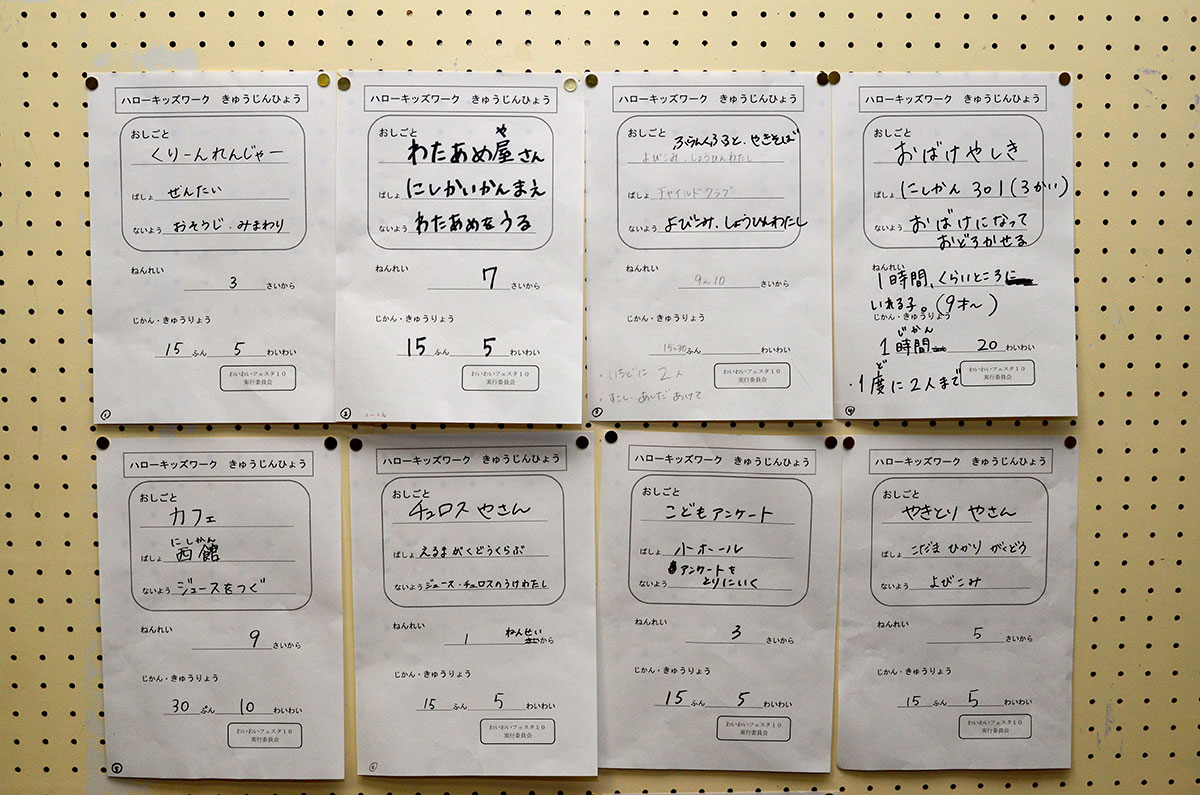 ハローキッズワーク　きゅうじんひょう
おしごと
くりーんれんじゃー
ばしょ ぜんたい
ないよう おそうじ・みまわり
ねんれい
3 さいから
じかん・きゅうりょう
15 ふん 5 わいわい
わいわいフェスタ１０
実行委員会
①
ハローキッズワーク　きゅうじんひょう
おしごと
や
わたあめ屋さん
ばしょ にしかいかんまえ
ないよう わたあめをうる
ねんれい
7 さいから
じかん・きゅうりょう
15 ふん 5 わいわい
わいわいフェスタ１０
実行委員会
②
ハローキッズワーク　きゅうじんひょう
おしごと
ふらんくふると、やきそば
よびこみ、しょうひんわたし
ばしょ チャイルドクラブ
ないよう よびこみ、しょうひんわたし
ねんれい
9〜10 さいから
じかん・きゅうりょう
15〜30 ふん わいわい
わいわいフェスタ１０
実行委員会
・いちどに 2人
・すこしあいだあけて
③
ハローキッズワーク　きゅうじんひょう
おしごと
おばけやしき
ばしょ にしかん 301(3かい)
ないよう おばけになって
おどろかせる
ねんれい
1時間、くらいところに
いれる子。(9才〜)
じかん・きゅうりょう
じかん
1時間 20 わいわい
わいわいフェスタ１０
実行委員会
ど
・1度に2人まで
④
ハローキッズワーク　きゅうじんひょう
おしごと
カフェ
にしかん
ばしょ 西館
ないよう ジュースをつぐ
ねんれい
9 さいから
じかん・きゅうりょう
30 ふん 10 わいわい
わいわいフェスタ１０
実行委員会
⑤
ハローキッズワーク　きゅうじんひょう
おしごと
チュロスやさん
ばしょ えるまがくどうくらぶ
ないよう ジュース・チュロスのうけわたし
ねんれい
1 ねんせい から
じかん・きゅうりょう
15 ふん 5 わいわい
わいわいフェスタ１０
実行委員会
⑥
ハローキッズワーク　きゅうじんひょう
おしごと
こどもアンケート
ばしょ 小ホール
アンケートを
ないよう とりにいく
ねんれい
3 さいから
じかん・きゅうりょう
15 ふん 5 わいわい
わいわいフェスタ１０
実行委員会
ハローキッズワーク　きゅうじんひょう
おしごと
やきとり やさん
ばしょ こだま ひかり がくどう
ないよう よびこみ
ねんれい
5 さいから
じかん・きゅうりょう
15 ふん 5 わいわい
わいわいフェスタ１０
実行委員会